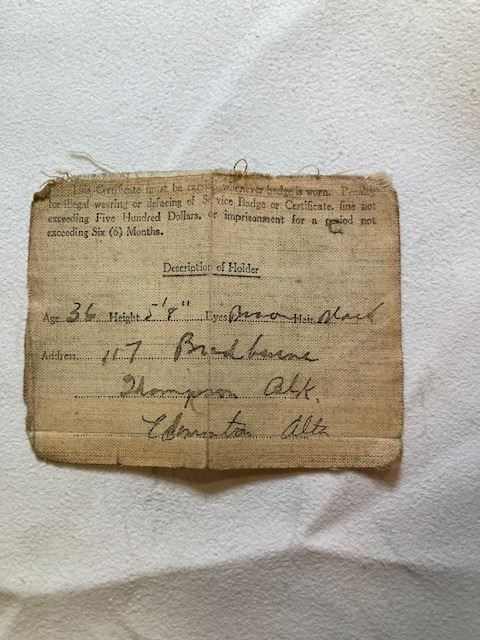 This Certificate must be carried whenever badge is worn. Penalty
for illegal wearing or defacing of Service Badge or Certificate, fine not
exceeding Five Hundred Dollars, or imprisonment for a period not
exceeding Six (6) Months.
Description of Holder
Age 36 Height 5'8" Eyes Brown Hair Black
Address 117 Bradburn
Thompson Blk.
Edmonton Alta